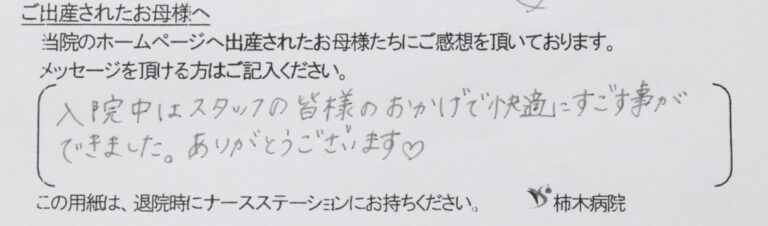 ご出産されたお母様へ
当院のホームページへ出産されたお母様たちにご感想を頂いております。
メッセージを頂ける方はご記入ください。
入院中はスタッフの皆様のおかげで快適にすごす事が
できました。ありがとうございます♡
この用紙は、退院時にナースステーションにお持ちください。 柿木病院